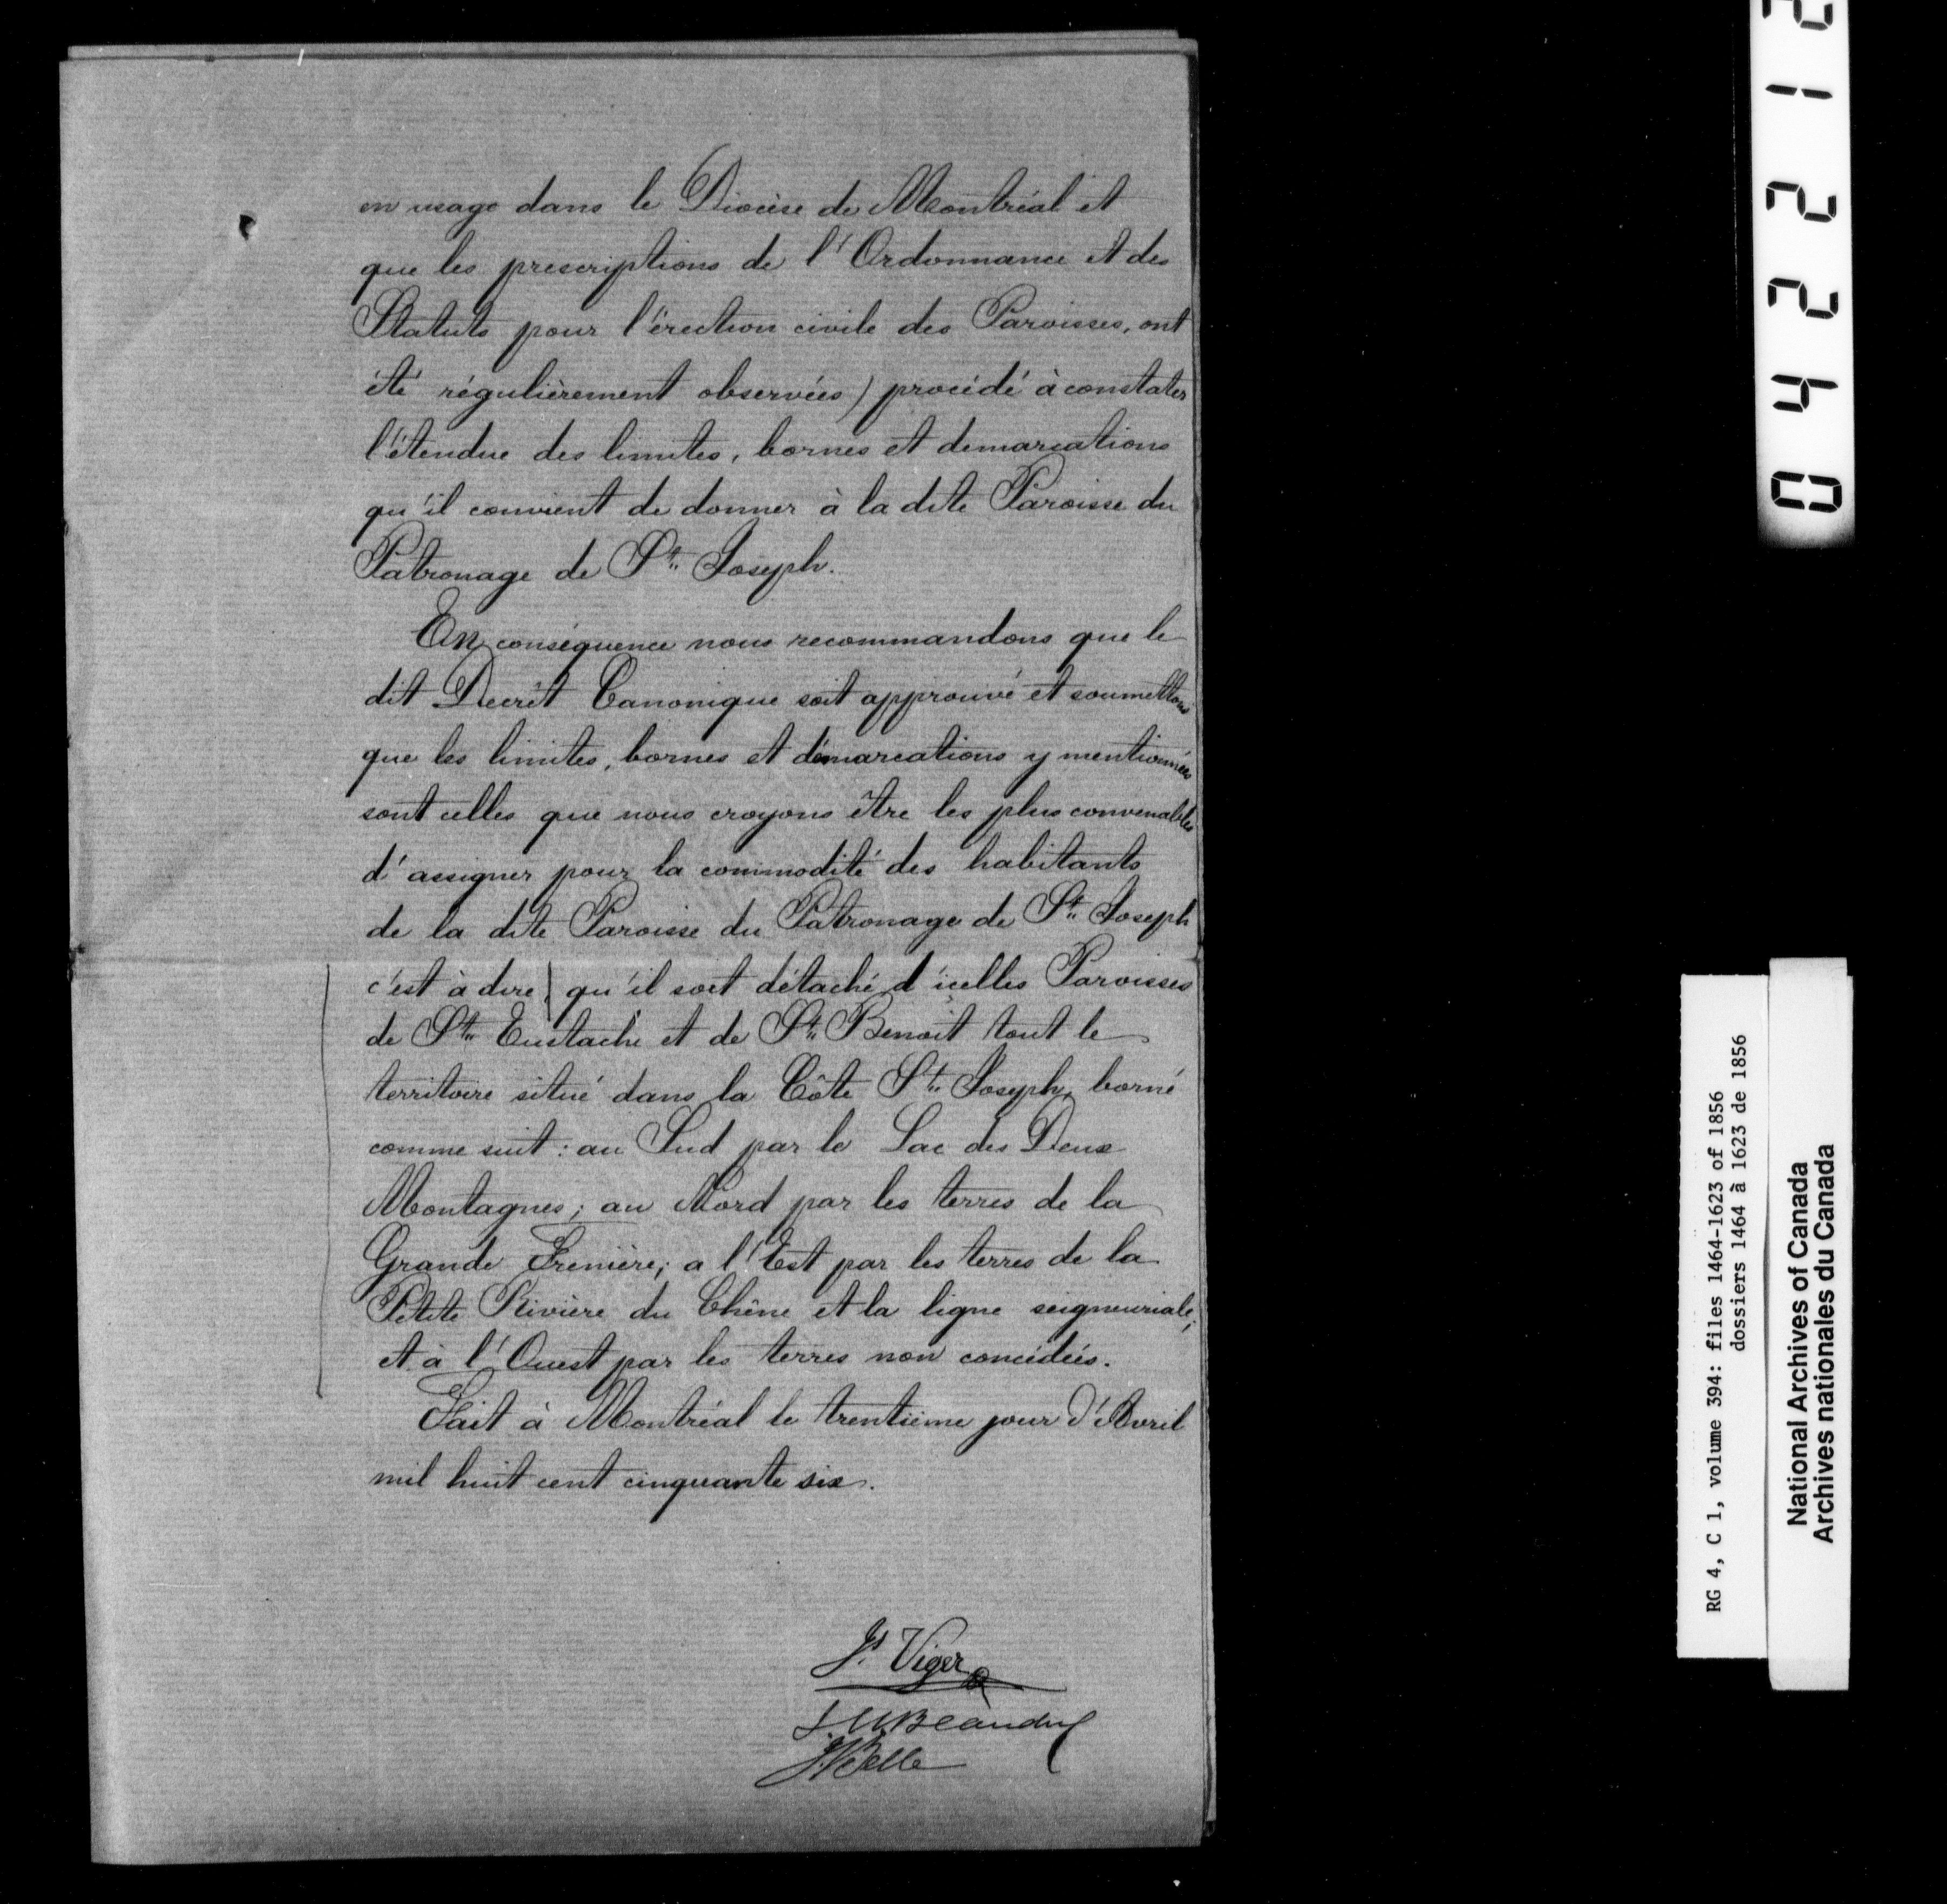 en usage dans le Diocèse de Montréal et
que les prescriptions de l'Ordonnance et des
Statuts pour l'érection civile des Paroisses, ont
été régulièrement observées) procédé à constater
l'étendue des limites, bornes et demarcations
qu'il convient de donner à la dite Paroisse du
Patronage de St. Joseph.
En conséquence nous recommandons que le
dit Decrèt Canonique soit approuvé et soumettons
que les limites, bornes et démarcations y mentionnées
sont celles que nous croyons être les plus convenables
d'assigner pour la commodité des habitants
de la dite Paroisse du Patronage de St. Joseph
c'est à dire, qu'il soit détaché d'icelles Paroisses
de St. Eustache et de St. Benoit tout le
territoire situé dans la Côte St. Joseph, borné
comme suit : au Sud par le Lac des Deux
Montagnes; au Nord par les terres de la
Grande Frenière; a l'Est par les terres de la
Petite Rivière du Chêne et la ligne seigneuriale;
et à l'Ouest par les terres non concédées.
Fait à Montréal le trentième jour d'Avril
mil huit cent cinquante six.
Js. Viger
J. Belle
04221 2
RG 4, C 1, volume 394: files 1464-1623 of 1856
dossiers 1464 à 1623 de 1856
National Archives of Canada
Archives nationales du Canada